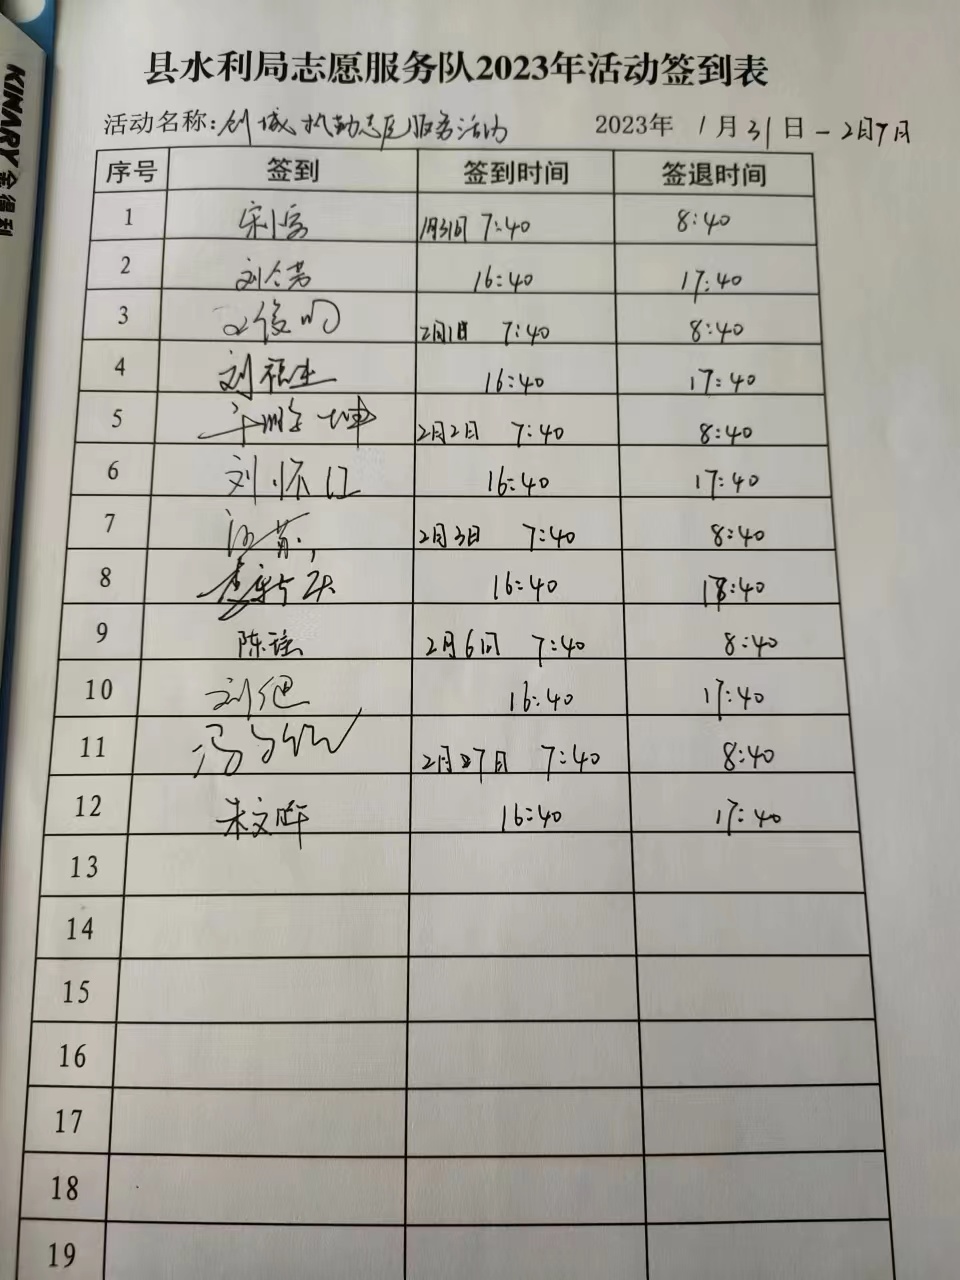 KINARY 金得利
县水利局志愿服务队2023年活动签到表
活动名称:创城执勤志愿服务活动 2023年 1月31日-2月7日
序号 签到 签到时间 签退时间
1 1月31日 7:40 8:40
2 16:40 17:40
3 2月1日 7:40 8:40
4 刘福生 16:40 17:40
5 2月2日 7:40 8:40
6 刘怀江 16:40 17:40
7 2月3日 7:40 8:40
8 16:40 17:40
9 陈瑶 2月6日 7:40 8:40
10 16:40 17:40
11 2月7日 7:40 8:40
12 朱文晖 16:40 17:40
13
14
15
16
17
18
19